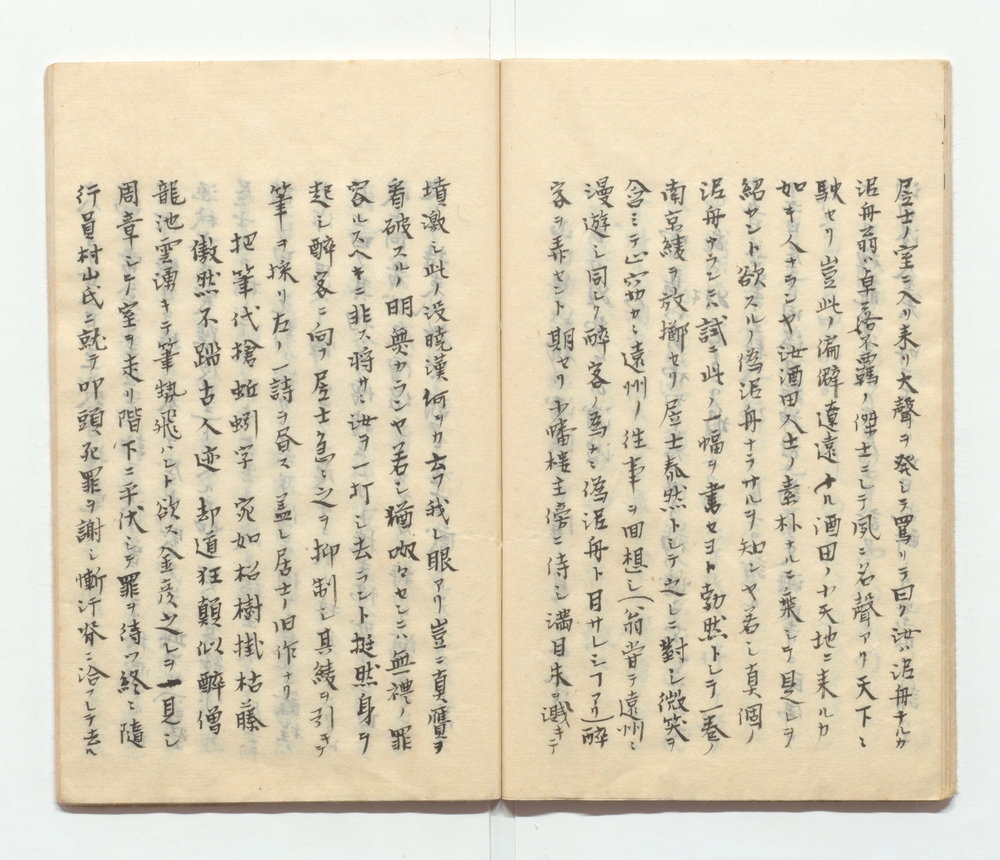 居士ノ室ニ入リ来リ大聲ヲ発シテ罵リテ曰ク汝ハ泥舟ナルカ
泥舟翁ハ卓落不羈ノ傑士ニシテ夙ニ名聲アリ天下ニ
馳セリ豈此ノ偏僻遼遠ナル酒田ノ小天地ニ来ルカ
如キ人ナランヤ汝酒田人士ノ素朴ナルニ乗シテ是レヲ
紿ヤント欲スルノ偽泥舟ナラサルヲ知ンヤ若シ真個ノ
泥舟ナランニハ試ニ此ノ一幅ヲ書セヨト勃然トシテ一巻ノ
南京綾ヲ放擲セリ居士泰然トシテ之レニ對シ微笑ヲ
含ミテ正ニ窃カニ遠州ノ往事ヲ回想シ(翁嘗テ遠州ニ
漫遊シ同シク醉客ノ為ナニ偽泥舟ト目サレシコアリ)醉
客ヲ弄セント期セリ小幡楼主傍ニ侍シ満目朱ヲ濺キテ
墳激シ此ノ没暁漢何ヲカ云フ我レ眼アリ豈ニ真贋ヲ
看破スルノ明無カランヤ若シ猶呶々センニハ無禮ノ罪
容ルスヘキニ非ス將サニ汝ヲ一打シ去ラント挺然身ヲ
起シ醉客ニ向フ居士急ニ之ヲ抑制シ其綾ヲ引キテ
筆ヲ採リ左ノ一詩ヲ書ス 蓋シ居士ノ旧作ナリ
把筆代槍蚯蚓字 宛如松樹掛枯藤
傲然不踏古人迹 却道狂顛似醉僧
龍池雲湧キテ筆勢飛ハント欲ス金彦之レヲ一見シ
周章シテ室ヲ走リ階下ニ平伏シテ罪ヲ待ツ終ニ隨
行員村山氏ニ就テ叩頭死罪ヲ謝シ慚汗脊ニ洽フシテ去ル